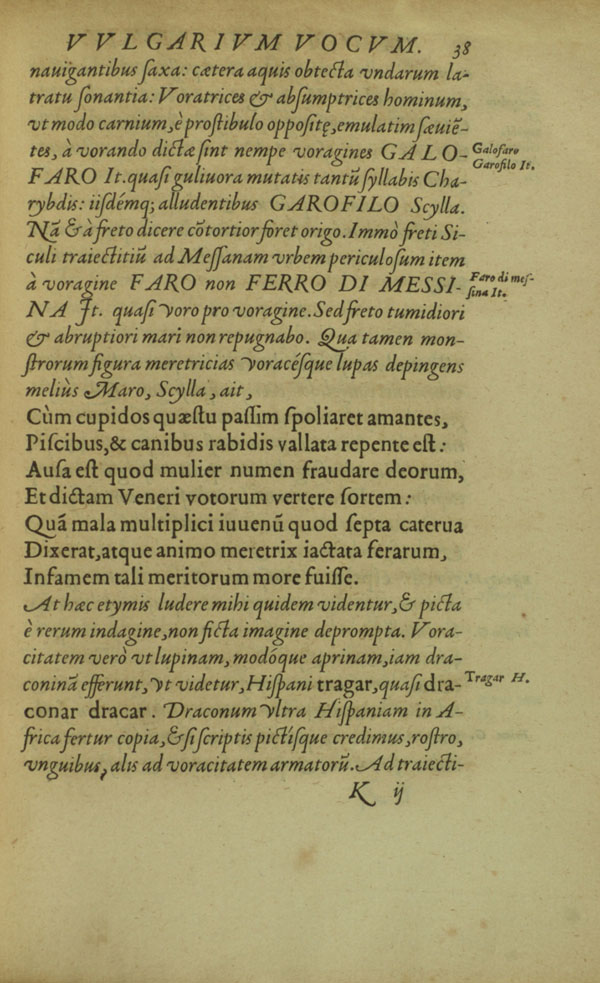 VVLGARIVM VOCVM. 38
nauigantibus ſaxa: cætera aquis obtecta vndarum la-
tratu ſonantia: Voratrices & abſumptrices hominum,
vt modo carnium, è proſtibulo oppoſitę, emulatim ſæuiē-
tes, à vorando dictæ ſint nempe voragines GALO-
Galofaro
Garofilo It.
FARO It. quaſi guliuora mutatis tantū ſyllabis Cha-
rybdis: iiſdémq; alludentibus GAROFILO Scylla.
Nā & à freto dicere cōtortior foret origo. Immò freti Si-
culi traiectitiū ad Meſſanam vrbem periculoſum item
à voragine FARO non FERRO DI MESSI-
Faro di meſ-
ſina It.
NA It. quaſi voro pro voragine. Sed freto tumidiori
& abruptiori mari non repugnabo. Qua tamen mon-
ſtrorum figura meretricias voracéſque lupas depingens
meliùs Maro, Scylla, ait,
Cùm cupidos quæſtu paſſim ſpoliaret amantes,
Piſcibus, & canibus rabidis vallata repente eſt:
Auſa eſt quod mulier numen fraudare deorum,
Et dictam Veneri votorum vertere ſortem:
Quā mala multiplici iuuenū quod ſepta caterua
Dixerat, atque animo meretrix iactata ferarum,
Infamem tali meritorum more fuiſſe.
At hæc etymis ludere mihi quidem videntur, & picta
è rerum indagine, non ficta imagine deprompta. Vora-
citatem verò vt lupinam, modóque aprinam, iam dra-
coninā efferunt, vt videtur, Hiſpani tragar, quaſi dra-
Tragar H.
conar dracar. Draconum vltra Hiſpaniam in A-
frica fertur copia, & ſi ſcriptis pictíſque credimus, roſtro,
vnguibus, alis ad voracitatem armatorū. Ad traiecti-
K ij